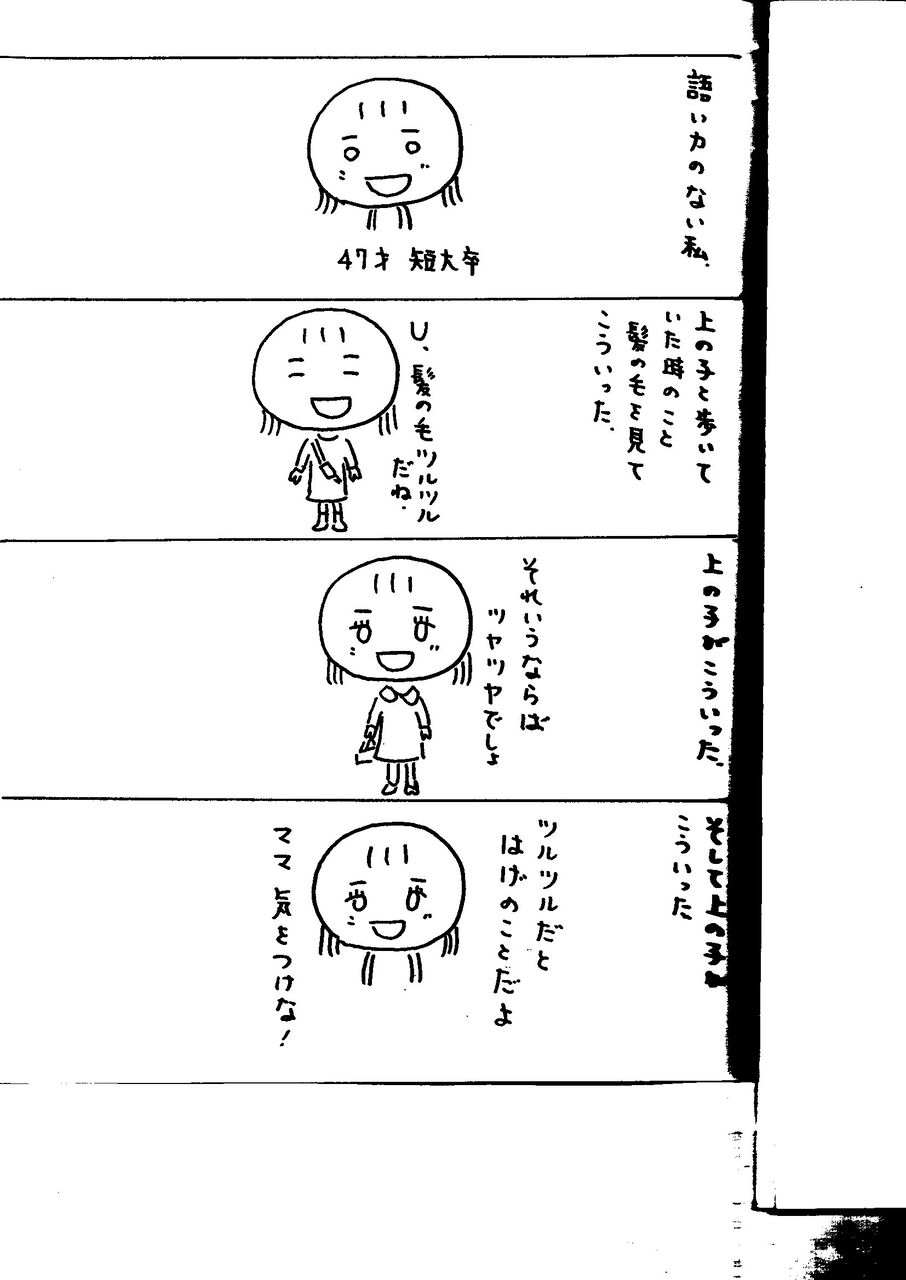 語い力のない私.
47才 短大卒
上の子と歩いて
いた時のこと
髪の毛を見て
こういった.
U、髪の毛ツルツル
だね.
上の子がこういった.
それいうならば
ツヤツヤでしょ
そして上の子は
こういった
ツルツルだと
はげのことだよ
ママ 気をつけな!